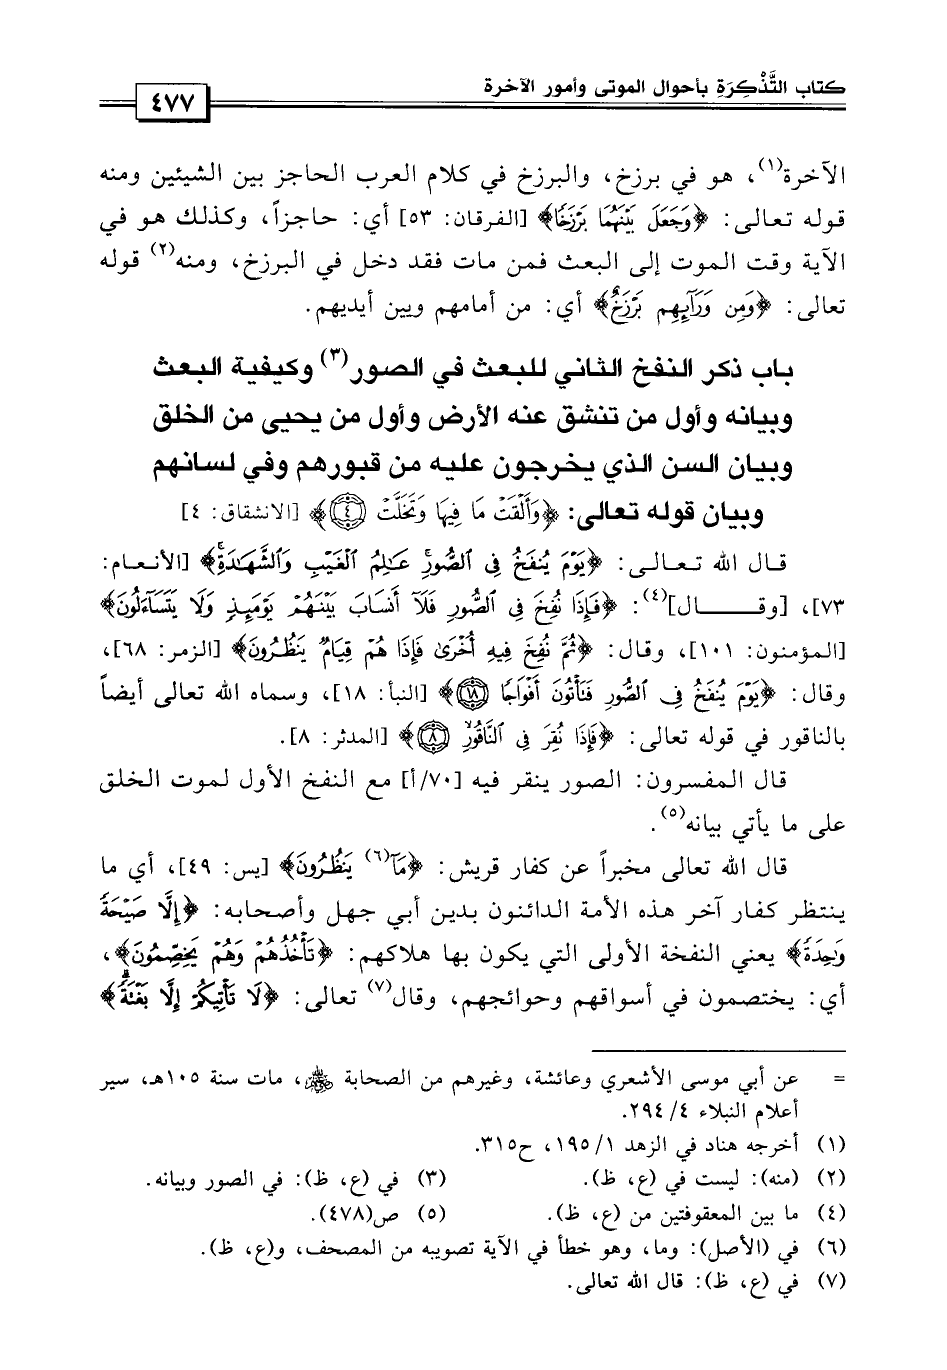 كتاب التَّذْكِرَةِ بأحوال الموتى وأمور الآخرة
٤٧٧
الآخرة(١)، هو في برزخ، والبرزخ في كلام العرب الحاجز بين الشيئين ومنه
قوله تعالى: ﴿وَجَعَلَ بَيْنَهُمَا بَرْزَخًا﴾ [الفرقان: ٥٣] أي: حاجزاً، وكذلك هو في
الآية وقت الموت إلى البعث فمن مات فقد دخل في البرزخ، ومنه(٢) قوله
تعالى: ﴿وَمِن وَرَآئِهِم بَرْزَخٌ﴾ أي: من أمامهم وبين أيديهم.
باب ذكر النفخ الثاني للبعث في الصور(٣) وكيفية البعث
وبيانه وأول من تنشق عنه الأرض وأول من يحيى من الخلق
وبيان السن الذي يخرجون عليه من قبورهم وفي لسانهم
وبيان قوله تعالى: ﴿وَأَلْقَتْ مَا فِيهَا وَتَخَلَّتْ ۝٤﴾ [الانشقاق: ٤]
قال الله تعالى: ﴿يَوْمَ يُنفَخُ فِى ٱلصُّورِۚ عَـٰلِمُ ٱلْغَيْبِ وَٱلشَّهَـٰدَةِۚ﴾ [الأنعام:
٧٣]، [وقـــــال](٤): ﴿فَإِذَا نُفِخَ فِى ٱلصُّورِ فَلَآ أَنسَابَ بَيْنَهُمْ يَوْمَئِذٍ وَلَا يَتَسَآءَلُونَ﴾
[المؤمنون: ١٠١]، وقال: ﴿ثُمَّ نُفِخَ فِيهِ أُخْرَىٰ فَإِذَا هُمْ قِيَامٌ يَنظُرُونَ﴾ [الزمر: ٦٨]،
وقال: ﴿يَوْمَ يُنفَخُ فِى ٱلصُّورِ فَتَأْتُونَ أَفْوَاجًا ۝١٨﴾ [النبأ: ١٨]، وسماه الله تعالى أيضاً
بالناقور في قوله تعالى: ﴿فَإِذَا نُقِرَ فِى ٱلنَّاقُورِ ۝٨﴾ [المدثر: ٨].
قال المفسرون: الصور ينقر فيه [٧٠/أ] مع النفخ الأول لموت الخلق
على ما يأتي بيانه(٥).
قال الله تعالى مخبراً عن كفار قريش: ﴿مَآ(٦) يَنظُرُونَ﴾ [يس: ٤٩]، أي ما
ينتظر كفار آخر هذه الأمة الدائنون بدين أبي جهل وأصحابه: ﴿إِلَّا صَيْحَةً
وَٰحِدَةً﴾ يعني النفخة الأولى التي يكون بها هلاكهم: ﴿تَأْخُذُهُمْ وَهُمْ يَخِصِّمُونَ﴾،
أي: يختصمون في أسواقهم وحوائجهم، وقال(٧) تعالى: ﴿لَا تَأْتِيكُمْ إِلَّا بَغْتَةً﴾
= عن أبي موسى الأشعري وعائشة، وغيرهم من الصحابة ﷺ، مات سنة ١٠٥هـ، سير
أعلام النبلاء ٤/ ٢٩٤.
(١) أخرجه هناد في الزهد ١/ ١٩٥، ح٣١٥.
(٢) (منه): ليست في (ع، ظ). (٣) في (ع، ظ): في الصور وبيانه.
(٤) ما بين المعقوفتين من (ع، ظ). (٥) ص(٤٧٨).
(٦) في (الأصل): وما، وهو خطأ في الآية تصويبه من المصحف، و(ع، ظ).
(٧) في (ع، ظ): قال الله تعالى.